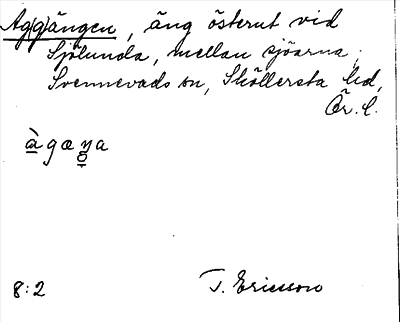 Ag(g)ängen, äng österut vid
Sjölunda, mellan sjöarna;
Svennevads sn, Sköllersta hd,
Ör. l.
àgæŋa
8:2
T. Ericsson